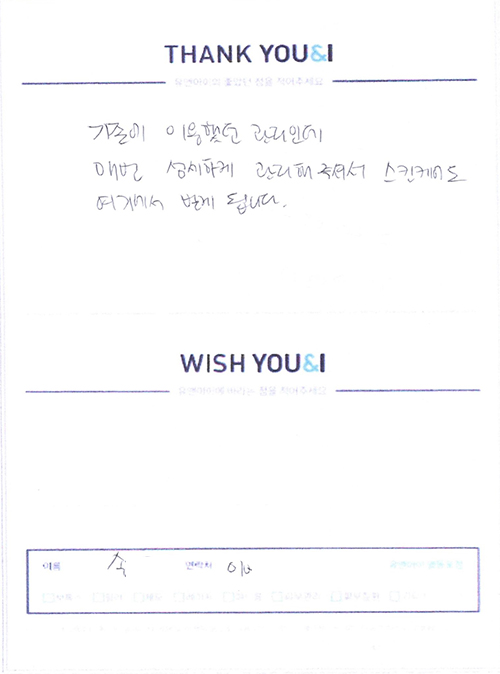 THANK YOU&I
유앤아이의 좋았던 점을 적어주세요
기존에 이용했던 관리인데
매번 섬세하게 관리해주셔서 스킨케어도
여기에서 받게 됩니다.
WISH YOU&I
유앤아이에 바라는 점을 적어주세요
이름 송 연락처 010